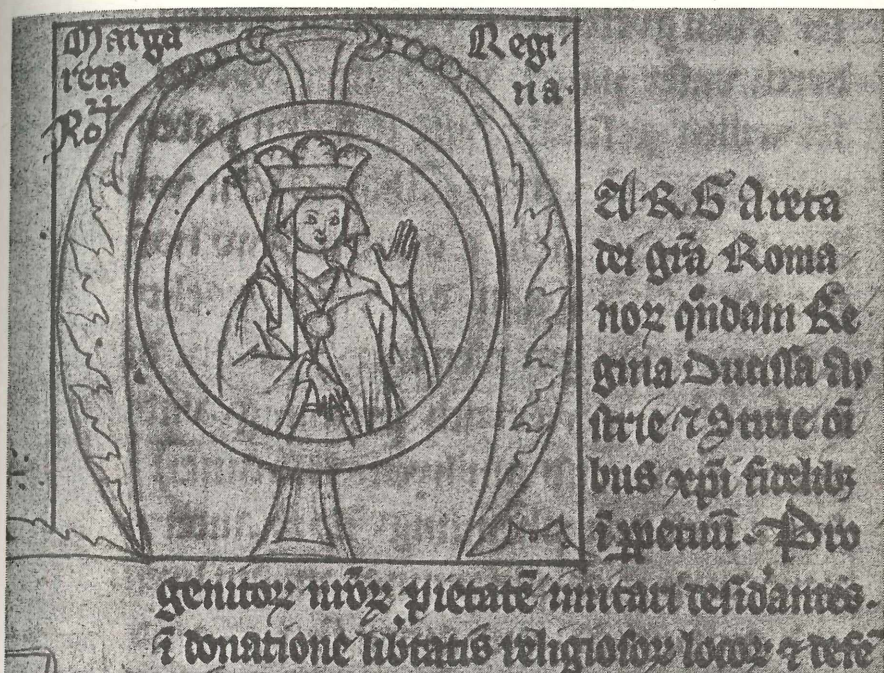 Marga
reta
Roꝝ
Regi
na.
ARGAreta
dei grā Roma
noꝝ qͦndam Re
gina Ducissa Au
strie ⁊ Stirie oī
bus xp̄i fidelibꝫ
ī ꝑpetuū. Pro
genitoꝝ nr̄oꝝ pietatē imitari desid'antes.
ī donatione lib'tatis religiosoꝝ locoꝝ ⁊ defē